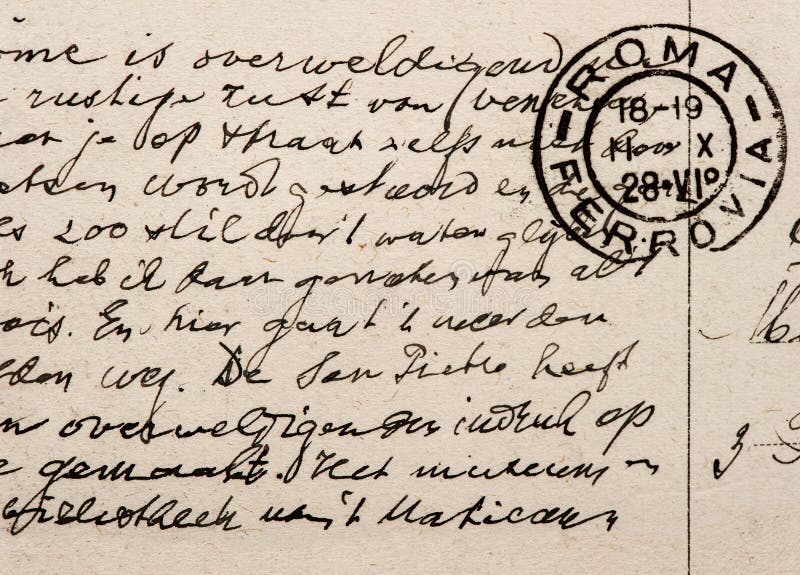 ome is overweldigend
rustige rust van
je op straat zelfs niet door
etsen wordt gestoord en de
es zoo stil door 't water glijdt
k heb ik daar genoten van al 't
ois. En hier gaat 't worden
lden weg. De San Pietro heeft
n overweldigenden indruk op
e gemaakt. Het museum en
bibliotheek van 't Vaticaan
ROMA
FERROVIA
18-19
11 X
28·VI°
3